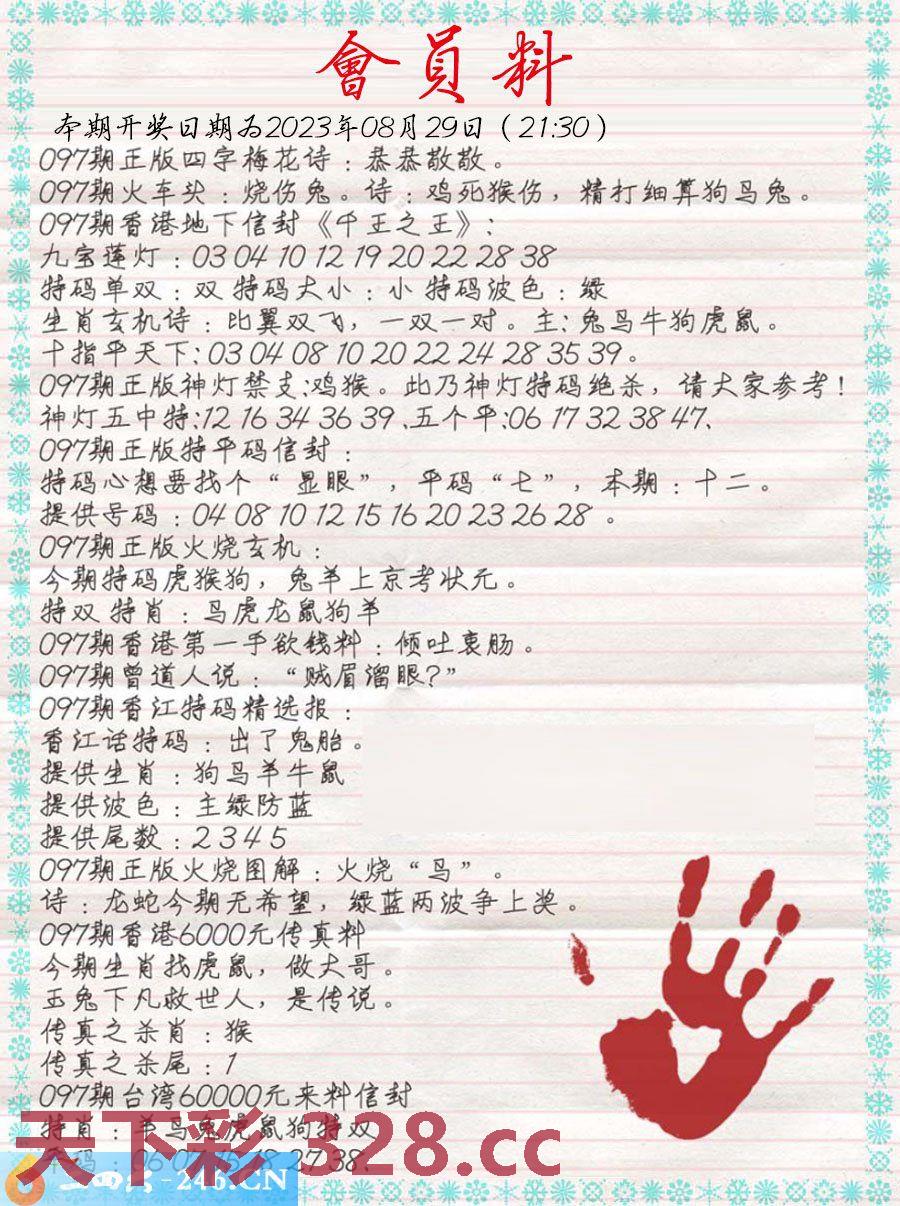 會員料
本期开奖日期为2023年08月29日（21:30）
097期正版四字梅花诗：恭恭敬敬。
097期火车头：烧伤兔。诗：鸡死猴伤，精打细算狗马兔。
097期香港地下信封《千王之王》：
九宝莲灯：03 04 10 12 19 20 22 28 38
特码单双：双 特码大小：小 特码波色：绿
生肖玄机诗：比翼双飞，一双一对。主：兔马牛狗虎鼠。
十指平天下:03 04 08 10 20 22 24 28 35 39。
097期正版神灯禁支:鸡猴。此乃神灯特码绝杀，请大家参考！
神灯五中特:12 16 34 36 39、五个平:06 17 32 38 47、
097期正版特平码信封：
特码心想要找个“显眼”，平码“七”，本期：十二。
提供号码：04 08 10 12 15 16 20 23 26 28 。
097期正版火烧玄机：
今期特码虎猴狗，兔羊上京考状元。
特双 特肖：马虎龙鼠狗羊
097期香港第一手欲钱料：倾吐衷肠。
097期曾道人说：“贼眉溜眼?”
097期香江特码精选报：
香江话特码：出了鬼胎。
提供生肖：狗马羊牛鼠
提供波色：主绿防蓝
提供尾数：2 3 4 5
097期正版火烧图解：火烧“马”。
诗：龙蛇今期无希望，绿蓝两波争上奖。
097期香港6000元传真料
今期生肖找虎鼠，做大哥。
玉兔下凡救世人，是传说。
传真之杀肖：猴
传真之杀尾：1
097期台湾60000元来料信封
特肖：羊马兔虎鼠狗特双
天下彩 328.cc
平码：06 07 15 18 27 38、
二四六-246.CN